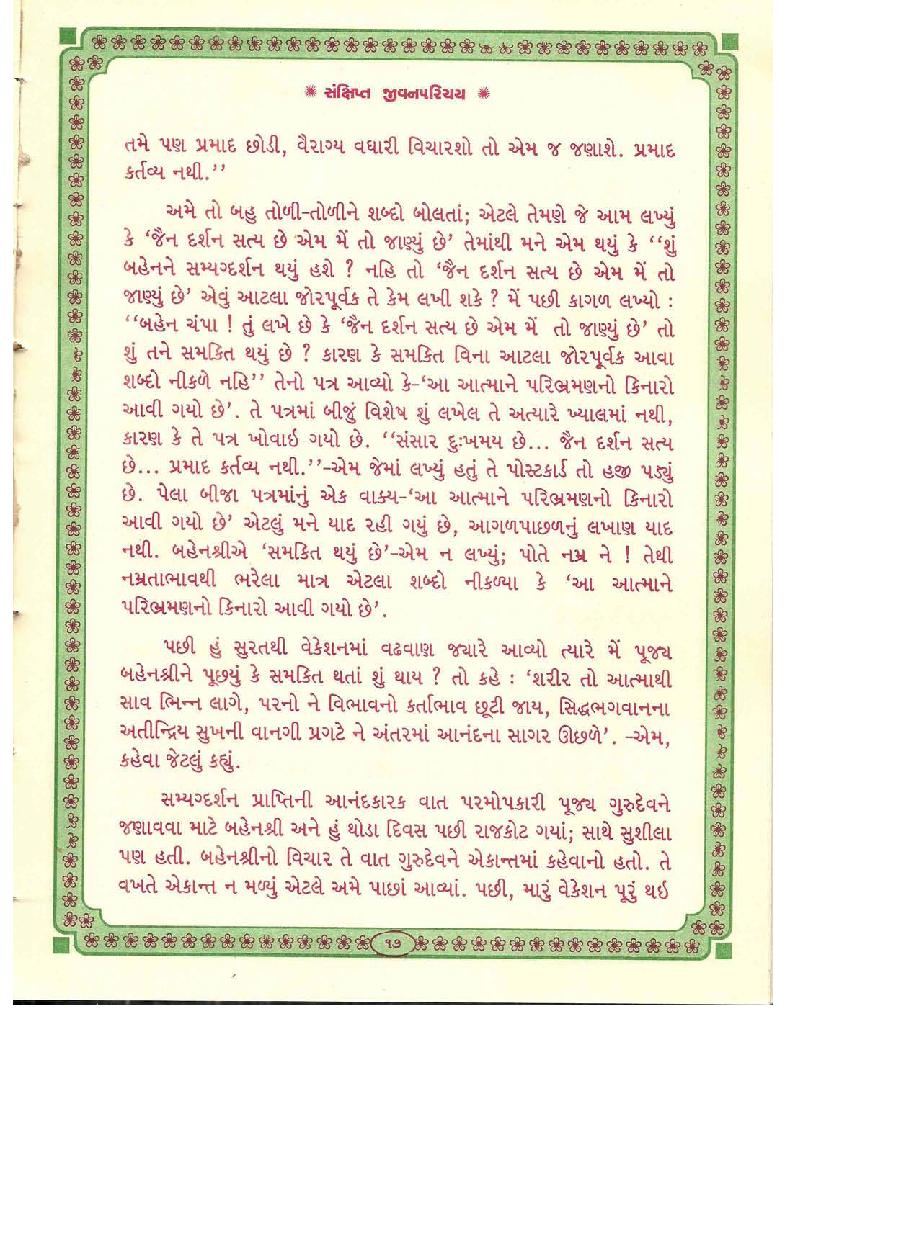 ❋ સંક્ષિપ્ત જીવનપરિચય ❋
તમે પણ પ્રમાદ છોડી, વૈરાગ્ય વધારી વિચારશો તો એમ જ જણાશે. પ્રમાદ
કર્તવ્ય નથી.’’
અમે તો બહુ તોળી-તોળીને શબ્દો બોલતાં; એટલે તેમણે જે આમ લખ્યું
કે ‘જૈન દર્શન સત્ય છે એમ મેં તો જાણ્યું છે’ તેમાંથી મને એમ થયું કે ‘‘શું
બહેનને સમ્યગ્દર્શન થયું હશે ? નહિ તો ‘જૈન દર્શન સત્ય છે એમ મેં તો
જાણ્યું છે’ એવું આટલા જોરપૂર્વક તે કેમ લખી શકે ? મેં પછી કાગળ લખ્યો :
‘‘બહેન ચંપા ! તું લખે છે કે ‘જૈન દર્શન સત્ય છે એમ મેં તો જાણ્યું છે’ તો
શું તને સમકિત થયું છે ? કારણ કે સમકિત વિના આટલા જોરપૂર્વક આવા
શબ્દો નીકળે નહિ’’ તેનો પત્ર આવ્યો કે-‘આ આત્માને પરિભ્રમણનો કિનારો
આવી ગયો છે’. તે પત્રમાં બીજું વિશેષ શું લખેલ તે અત્યારે ખ્યાલમાં નથી,
કારણ કે તે પત્ર ખોવાઇ ગયો છે. ‘‘સંસાર દુઃખમય છે... જૈન દર્શન સત્ય
છે... પ્રમાદ કર્તવ્ય નથી.’’-એમ જેમાં લખ્યું હતું તે પોસ્ટકાર્ડ તો હજી પડ્યું
છે. પેલા બીજા પત્રમાંનું એક વાક્ય-‘આ આત્માને પરિભ્રમણનો કિનારો
આવી ગયો છે’ એટલું મને યાદ રહી ગયું છે, આગળપાછળનું લખાણ યાદ
નથી. બહેનશ્રીએ ‘સમકિત થયું છે’-એમ ન લખ્યું; પોતે નમ્ર ને ! તેથી
નમ્રતાભાવથી ભરેલા માત્ર એટલા શબ્દો નીકળ્યા કે ‘આ આત્માને
પરિભ્રમણનો કિનારો આવી ગયો છે’.
પછી હું સુરતથી વેકેશનમાં વઢવાણ જ્યારે આવ્યો ત્યારે મેં પૂજ્ય
બહેનશ્રીને પૂછ્યું કે સમકિત થતાં શું થાય ? તો કહે : ‘શરીર તો આત્માથી
સાવ ભિન્ન લાગે, પરનો ને વિભાવનો કર્તાભાવ છૂટી જાય, સિદ્ધભગવાનના
અતીન્દ્રિય સુખની વાનગી પ્રગટે ને અંતરમાં આનંદના સાગર ઊછળે’. -એમ,
કહેવા જેટલું કહ્યું.
સમ્યગ્દર્શન પ્રાપ્તિની આનંદકારક વાત પરમોપકારી પૂજ્ય ગુરુદેવને
જણાવવા માટે બહેનશ્રી અને હું થોડા દિવસ પછી રાજકોટ ગયાં; સાથે સુશીલા
પણ હતી. બહેનશ્રીનો વિચાર તે વાત ગુરુદેવને એકાન્તમાં કહેવાનો હતો. તે
વખતે એકાન્ત ન મળ્યું એટલે અમે પાછાં આવ્યાં. પછી, મારું વેકેશન પૂરું થઇ
૧૭